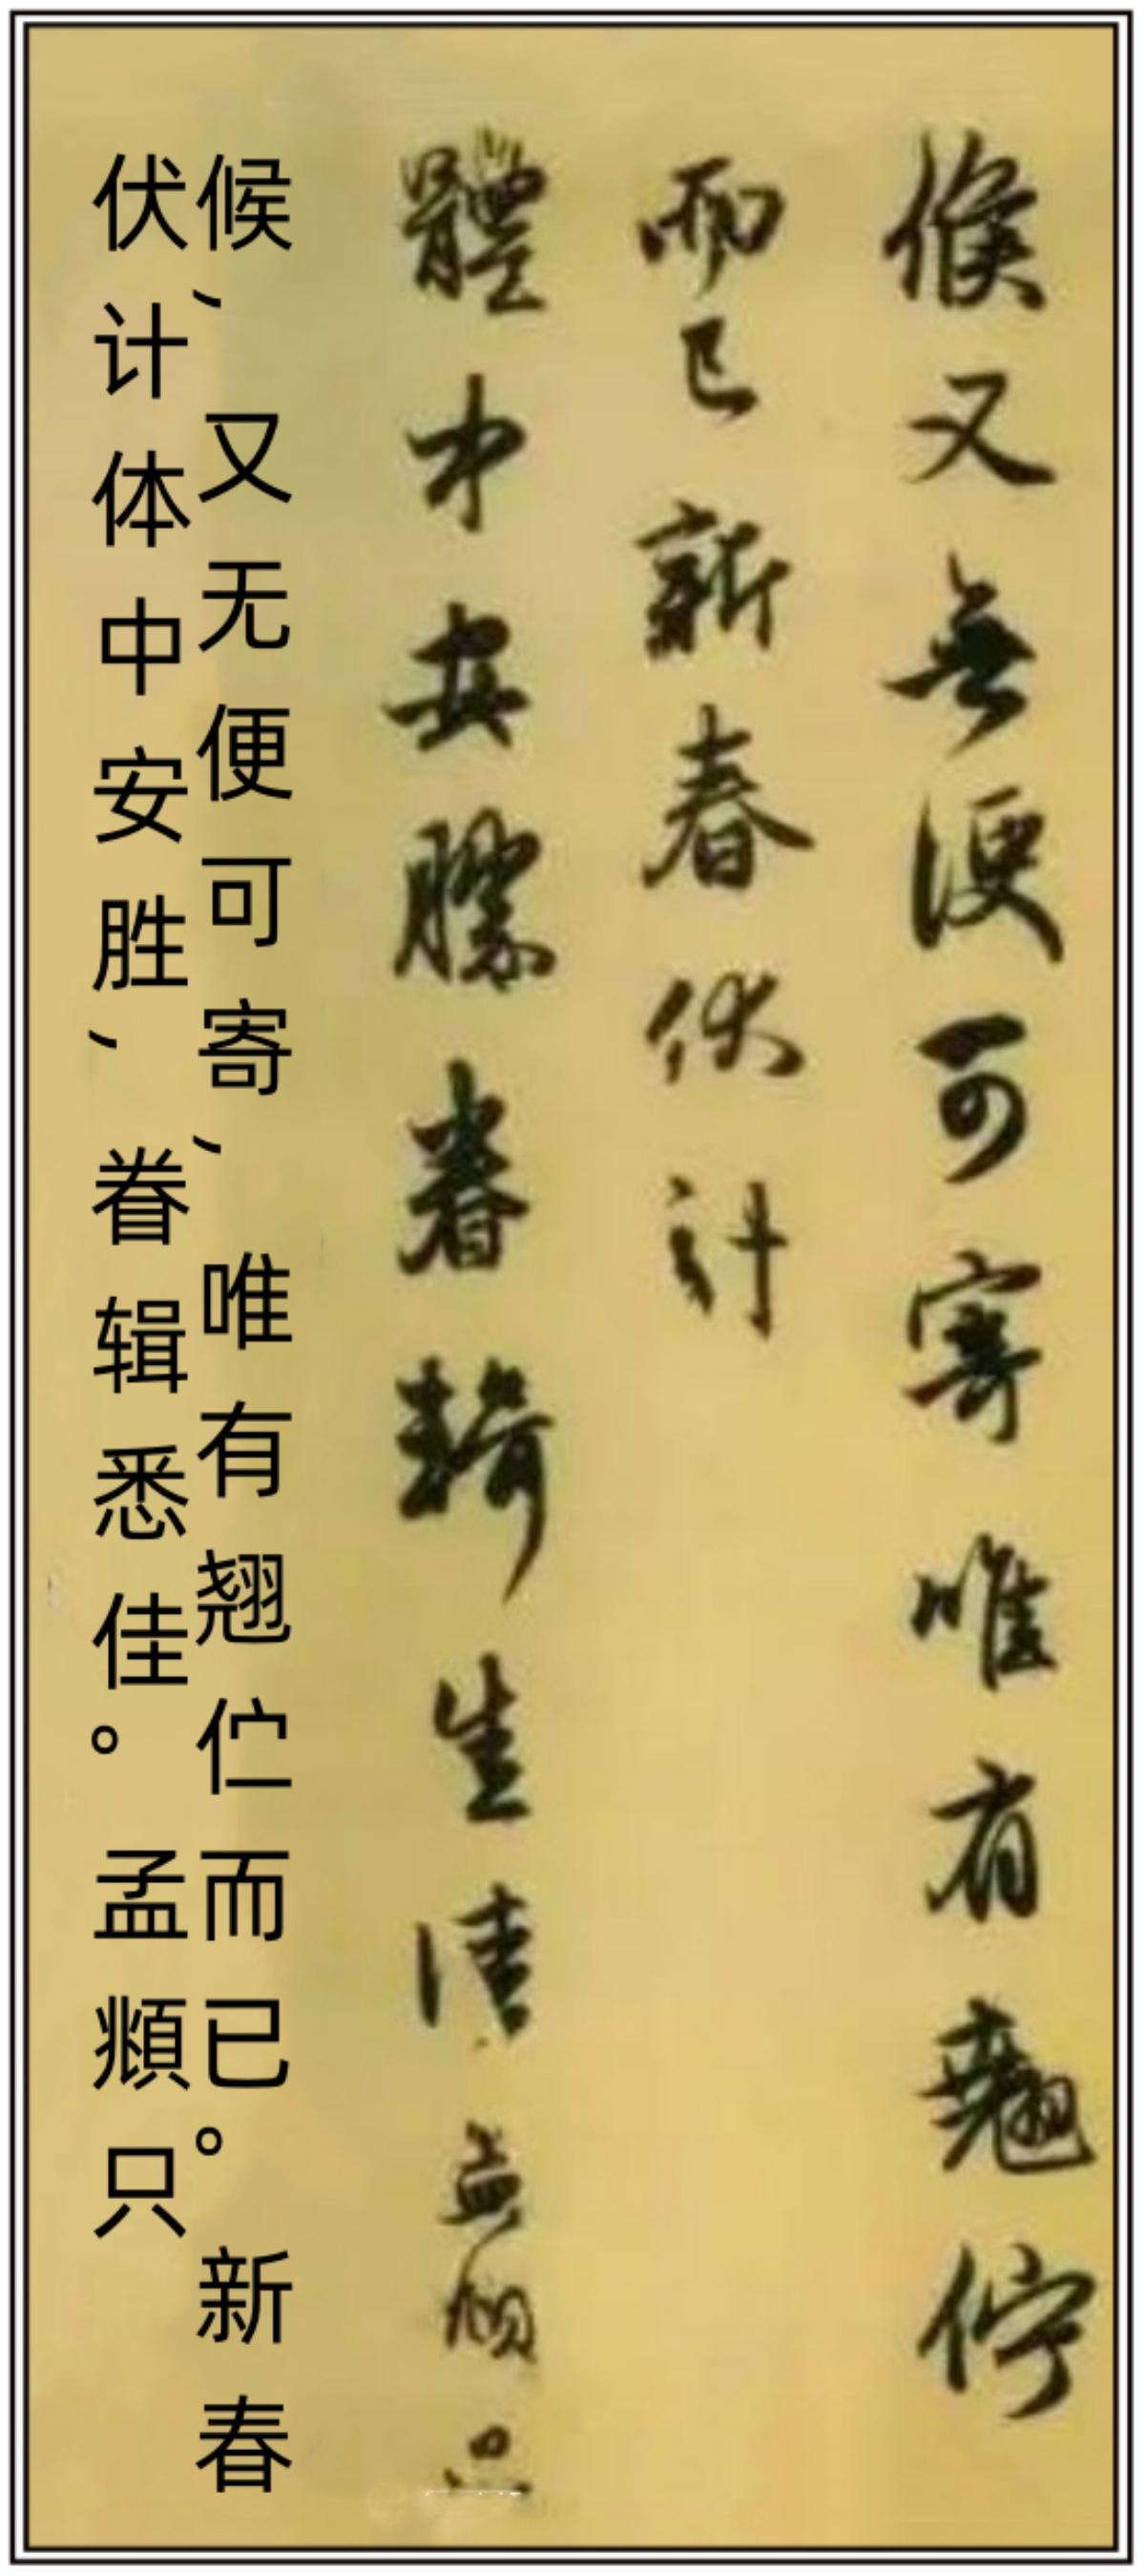 候又無便可寄唯有翹佇
而已新春伏計
體中安勝眷生清孟頫只
候，又无便可寄，唯有翘伫而已。新春
伏计体中安胜，眷辑悉佳。孟頫只